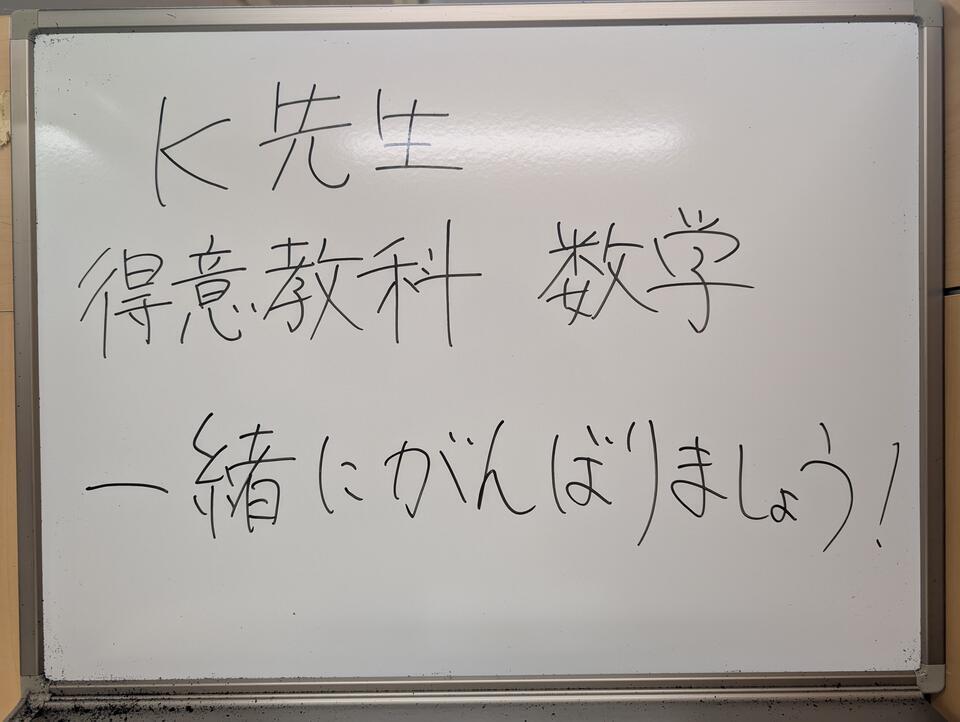 K先生
得意教科 数学
一緒にがんばりましょう!